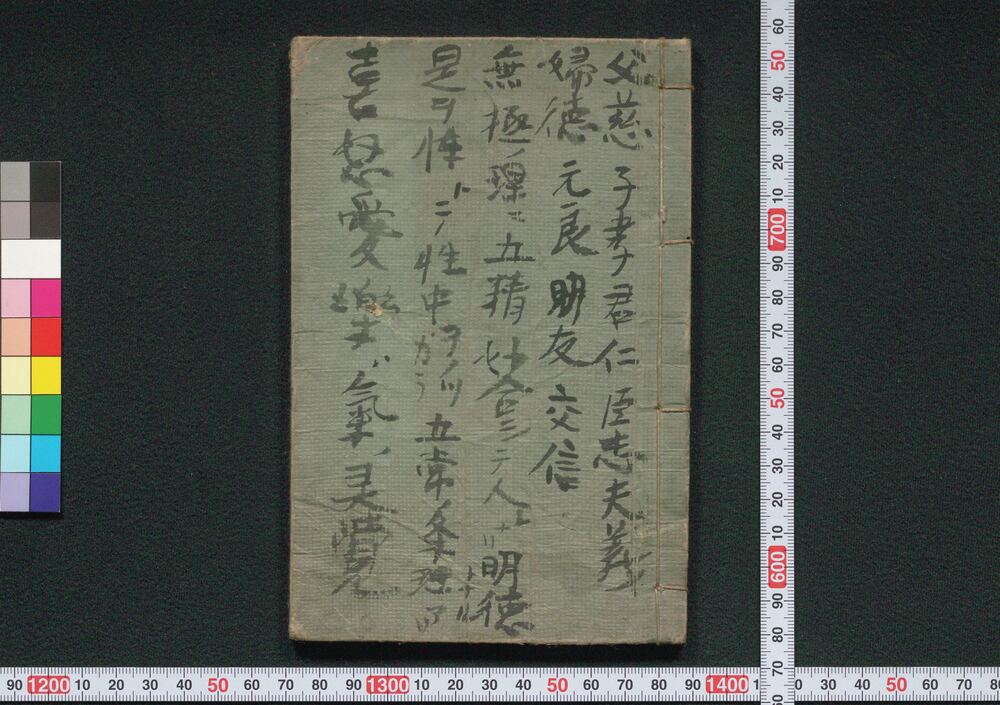 父慈子孝君仁臣志夫義
婦徳元良朋友交信
無極ノ理ニ五精妙合シテ人 ナリ明徳
是ヲ性 テ性中 五常ノ条理
喜怒愛樂ハ氣ノ灵覚
60 50 40 30 20 10 700 90 80 70 60 50 40 30 20 10 600 90 80 70 60
90 1200 10 20 30 40 50 60 70 80 90 1300 10 20 30 40 50 60 70 80 90 1400 20 30 40 50 60 70 80